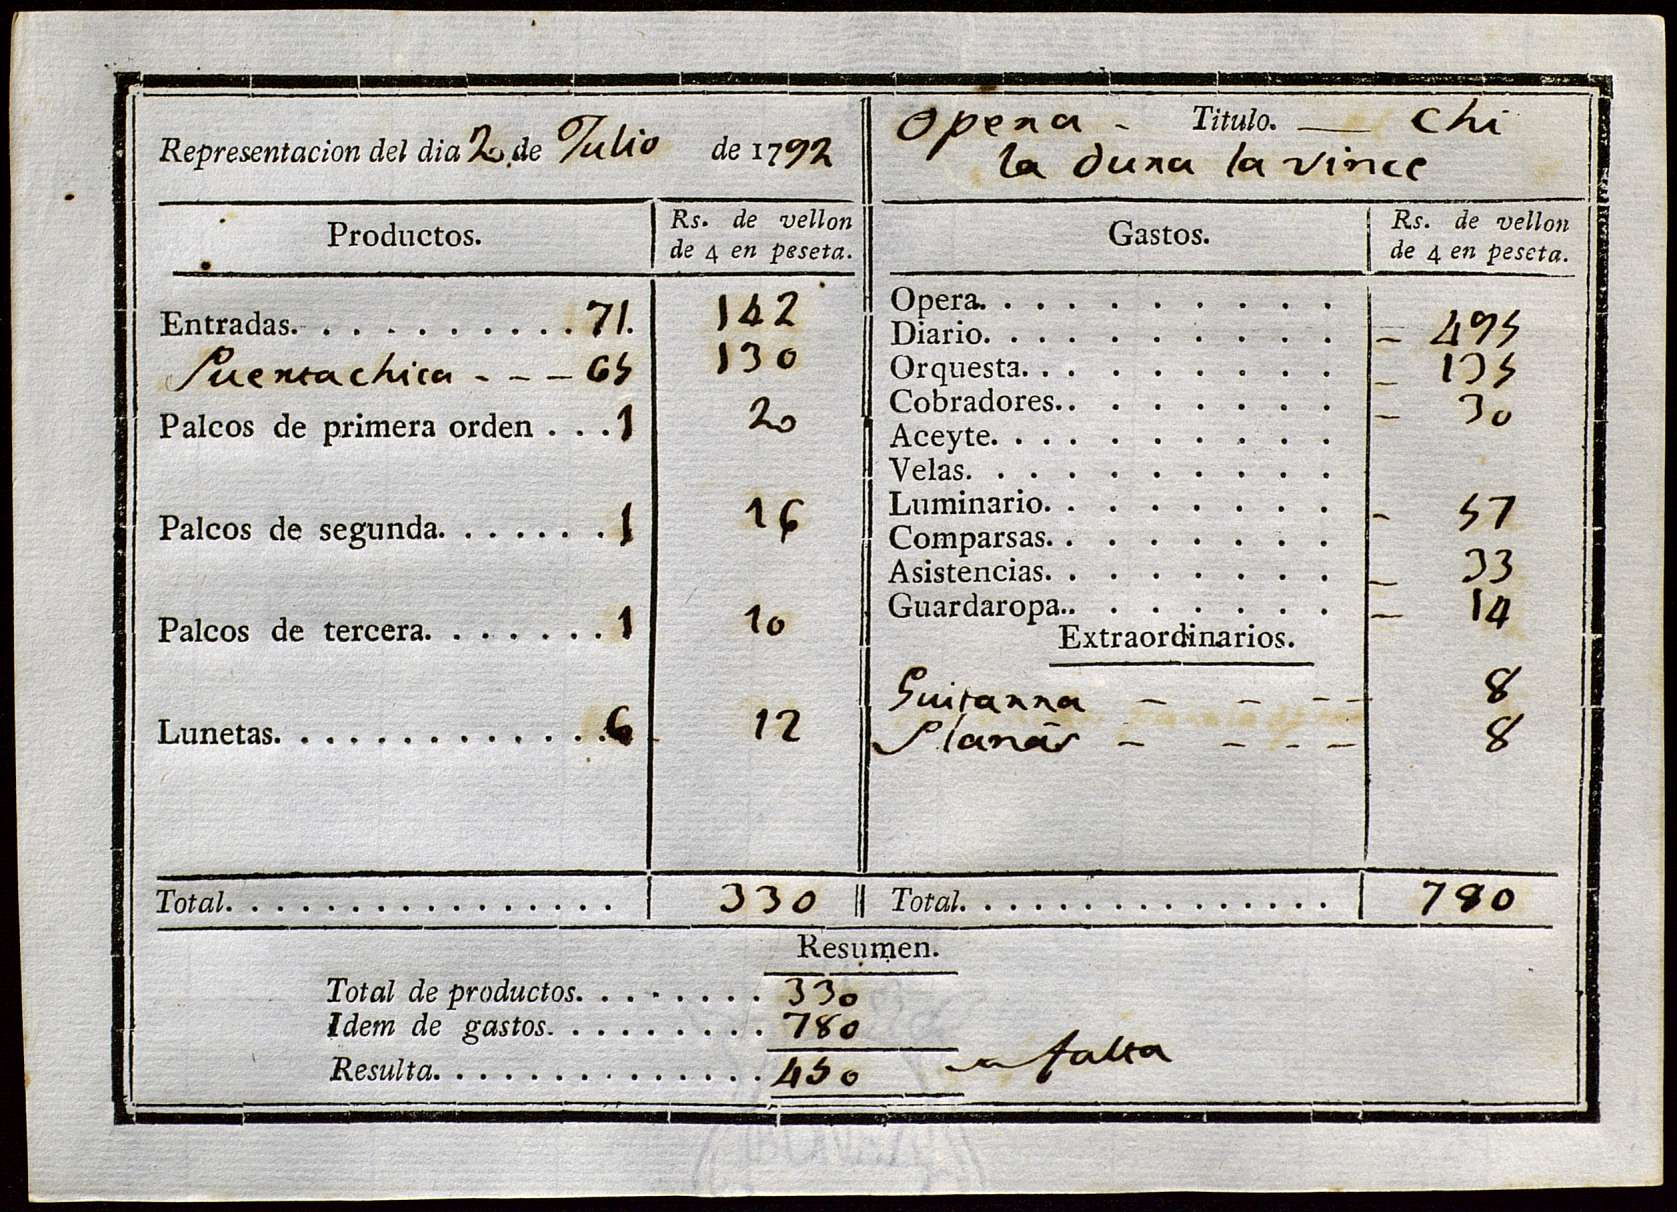 Representacion del dia 20 de Julio de 1792
Opera - Titulo. — Chi
la dura la vince
Productos.
Rs. de vellon
de 4 en peseta.
Gastos.
Rs. de vellon
de 4 en peseta.
Entradas. . . . . . . . . . 71. 142
Puertachica - - - 65 130
Palcos de primera orden . . . 1 20
Palcos de segunda. . . . . . . 1 16
Palcos de tercera. . . . . . . 1 10
Lunetas. . . . . . . . . . . . . 6 12
Opera. . . . . . . . . .
Diario. . . . . . . . . . - 495
Orquesta. . . . . . . . . - 135
Cobradores. . . . . . . . - 30
Aceyte. . . . . . . . . .
Velas. . . . . . . . . .
Luminario. . . . . . . . - 57
Comparsas. . . . . . . .
Asistencias. . . . . . . . - 33
Guardaropa. . . . . . . . - 14
Extraordinarios.
Guitarra - - - - 8
Planas - - - - 8
Total. . . . . . . . . . . . . . . . 330
Total. . . . . . . . . . . . . . . 780
Resumen.
Total de productos. . . . . . . . 330
Idem de gastos. . . . . . . . . 780
Resulta. . . . . . . . . . . . . . 450 falta